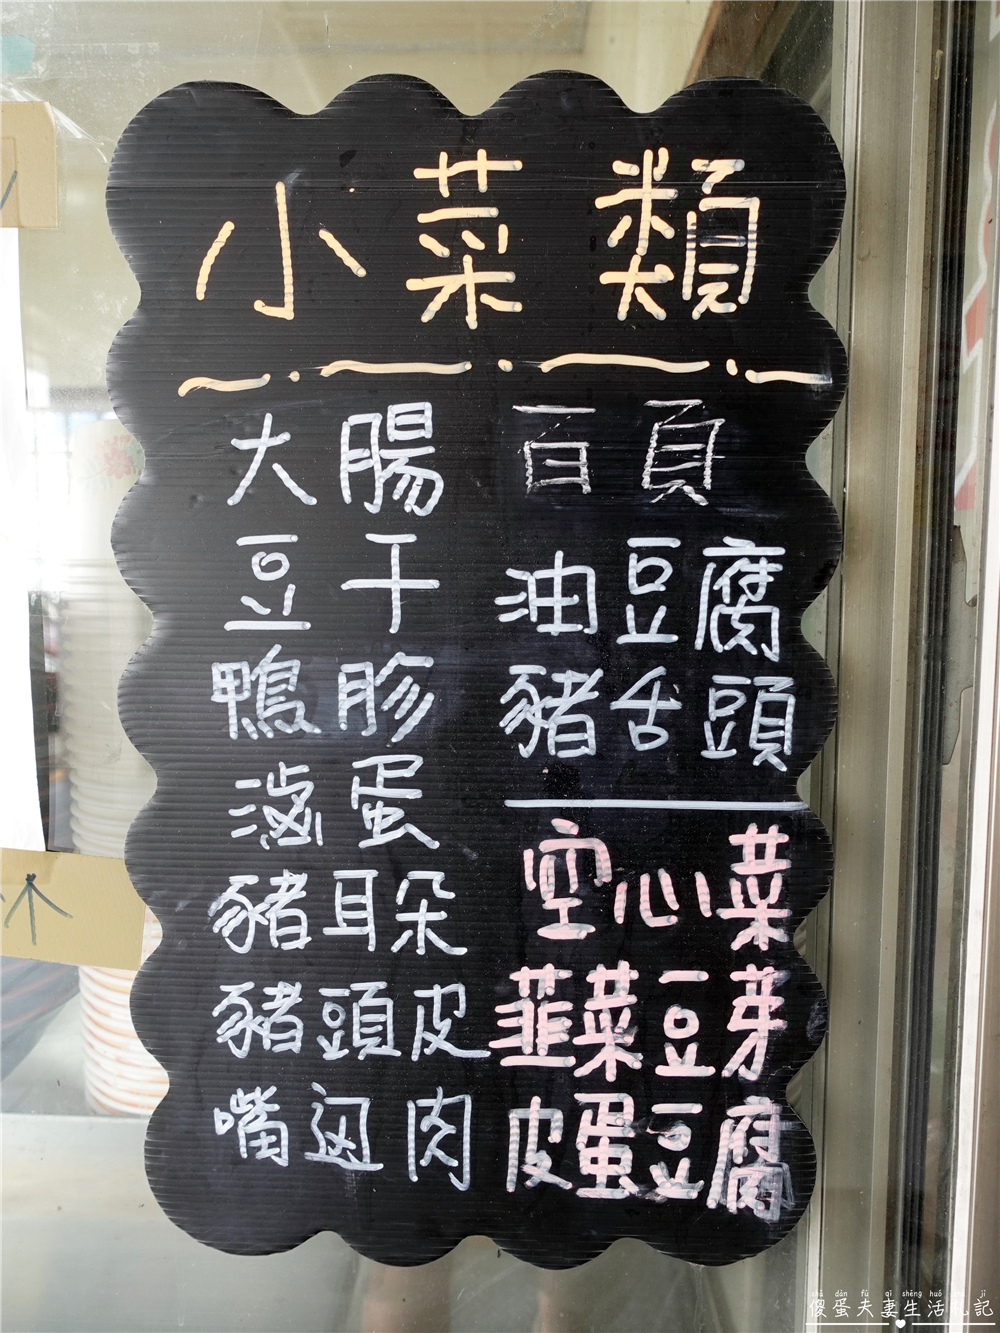 小菜類
大腸
豆干
鴨胗
滷蛋
豬耳朵
豬頭皮
嘴边肉
百頁
油豆腐
豬舌頭
空心菜
韮菜豆芽
皮蛋豆腐
木
shǎ dàn fū qī shēng huó zhá jì
傻蛋夫妻生活札記